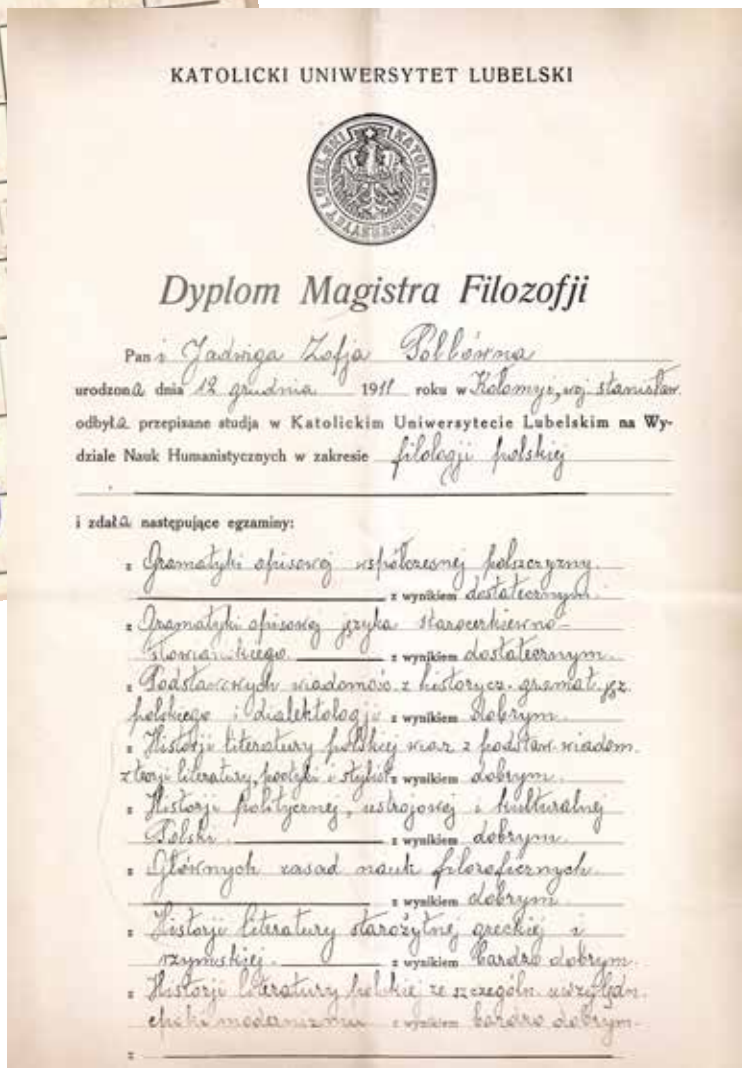 KATOLICKI UNIWERSYTET LUBELSKI
KATOLICKI UNIWERSYTET LUBELSKI
Dyplom Magistra Filozofji
Pani Jadwiga Zofja
urodzona dnia 12 grudnia 1911 roku w Kołomyi, woj. stanisław.
odbyła przepisane studja w Katolickim Uniwersytecie Lubelskim na Wy-
dziale Nauk Humanistycznych w zakresie filologji polskiej
i zdała następujące egzaminy:
z Gramatyki opisowej współczesnej polszczyzny.
z wynikiem dostatecznym.
z Gramatyki opisowej języka starocerkiewno-
słowiańskiego. z wynikiem dostatecznym.
z Podstawowych wiadomośc. z historycz. gramat. jęz.
polskiego i dialektologji z wynikiem dobrym.
z Historji literatury polskiej wraz z podstaw. wiadom.
z teorji literatury, poetyki i stylist. z wynikiem dobrym.
z Historji politycznej, ustrojowej i kulturalnej
Polski. z wynikiem dobrym.
z Głównych zasad nauk filozoficznych.
z wynikiem dobrym.
z Historji literatury starożytnej greckiej i
rzymskiej. z wynikiem bardzo dobrym.
z Historji literatury polskiej ze szczególn. uwzględn.
epoki modernizmu z wynikiem bardzo dobrym.
z